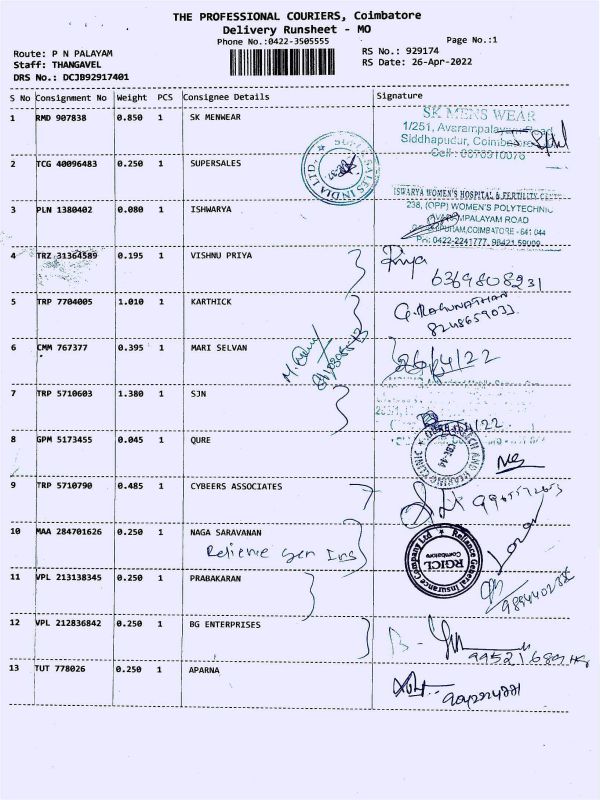 THE PROFESSIONAL COURIERS, Coimbatore
Delivery Runsheet - MO
Phone No.:0422-3505555
Page No.:1
Route: P N PALAYAM
RS No.: 929174
Staff: THANGAVEL
RS Date: 26-Apr-2022
DRS No.: DCJB92917401
S No Consignment No Weight PCS Consignee Details Signature
1 RMD 907838 0.850 1 SK MENWEAR
SK MENS WEAR
1/251, Avarampalayam Road
Siddhapudur, Coimbatore
2 TCG 40096483 0.250 1 SUPERSALES
SUPER SALES INDIA LTD.
ISWARYA WOMEN'S HOSPITAL & FERTILITY
3 PLN 1380402 0.080 1 ISHWARYA
238, (OPP) WOMEN'S POLYTECHNIC
AVARAMPALAYAM ROAD
COIMBATORE - 641 044
PH: 0422-2241777, 98421 59000
4 TRZ 31364589 0.195 1 VISHNU PRIYA
Priya
6369808231
5 TRP 7704005 1.010 1 KARTHICK
G. RAGUNATHAN
8248659033
6 CMM 767377 0.395 1 MARI SELVAN
26/4/22
7 TRP 5710603 1.380 1 SJN
8 GPM 5173455 0.045 1 QURE
SPEECH AND HEARING CLINIC
9 TRP 5710790 0.485 1 CYBEERS ASSOCIATES
10 MAA 284701626 0.250 1 NAGA SARAVANAN
Relience Gen Ins
Reliance General Insurance Company Ltd
RGICL
Coimbatore
11 VPL 213138345 0.250 1 PRABAKARAN
12 VPL 212836842 0.250 1 BG ENTERPRISES
13 TUT 778026 0.250 1 APARNA